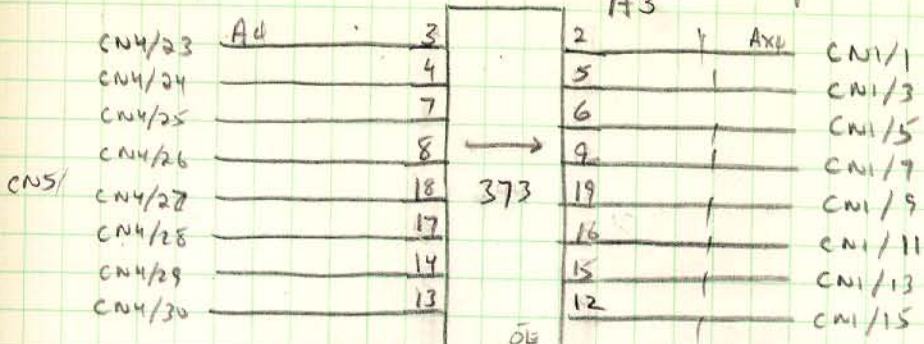 A3
CN4/23 A4 3 2 Ax4 CN1/1
CN4/24 4 5 CN1/3
CN4/25 7 6 CN1/5
CN4/26 8 9 CN1/7
CN5/ CN4/27 18 373 19 CN1/9
CN4/28 17 16 CN1/11
CN4/29 14 15 CN1/13
CN4/30 13 12 CN1/15
OE